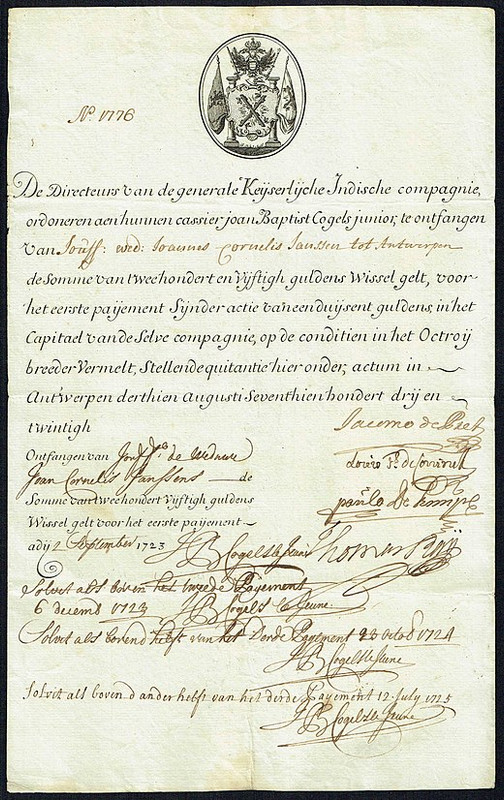 N.º 1776
De Directeurs van de generale Keijserlijche Indische compagnie,
ordoneren aen hunnen cassier joan Baptist Cogels junior, te ontfangen
van Jouff: wed: Joannes Cornelis Janssen tot Antwerpen
de Somme van twee hondert en Vijftigh guldens Wissel gelt, voor
het eerste paijement Sijnder actie van een duijsent guldens, in het
Capitael van de Selve compagnie, op de conditien in het Octroij
breeder Vermelt, Stellende quitantie hier onder, actum in
Antwerpen derthien Augusti Seventhien hondert drij en
twintigh
Jacomo de Pret
Ontfangen van Jouf de Weduwe
Joan Cornelis Janssens de
Somme van twee hondert Vijftigh guldens
Wissel gelt voor het eerste paijement
adij 2 September 1723
J B Cogels le Jeune
Solvit als boven het tweede Payement
6 decemb 1723 J B Cogels le Jeune
Solvit als bovend helft van het derde Payement 23 octob 1724
J B Cogels le Jeune
Solvit als boven d'ander helft van het derde Payement 12 july 1725
J B Cogels le Jeune